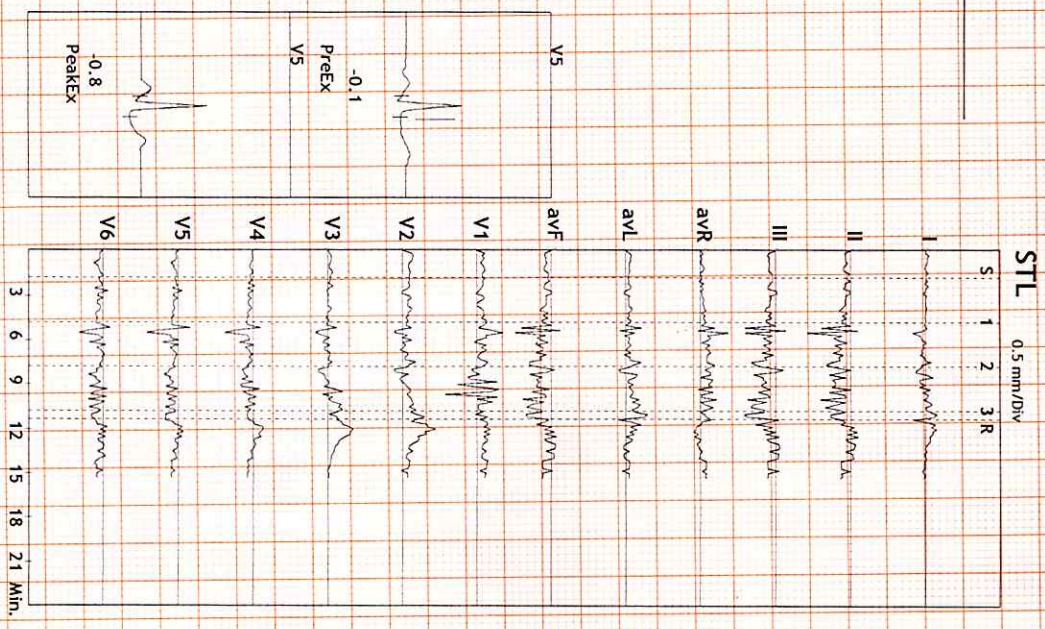 STL 0.5 mm/Div
S 1 2 3 R
I
II
III
avR
avL
avF
V1
V2
V3
V4
V5
V6
3 6 9 12 15 18 21 Min.
V5
-0.1
PreEx
V5
-0.8
PeakEx